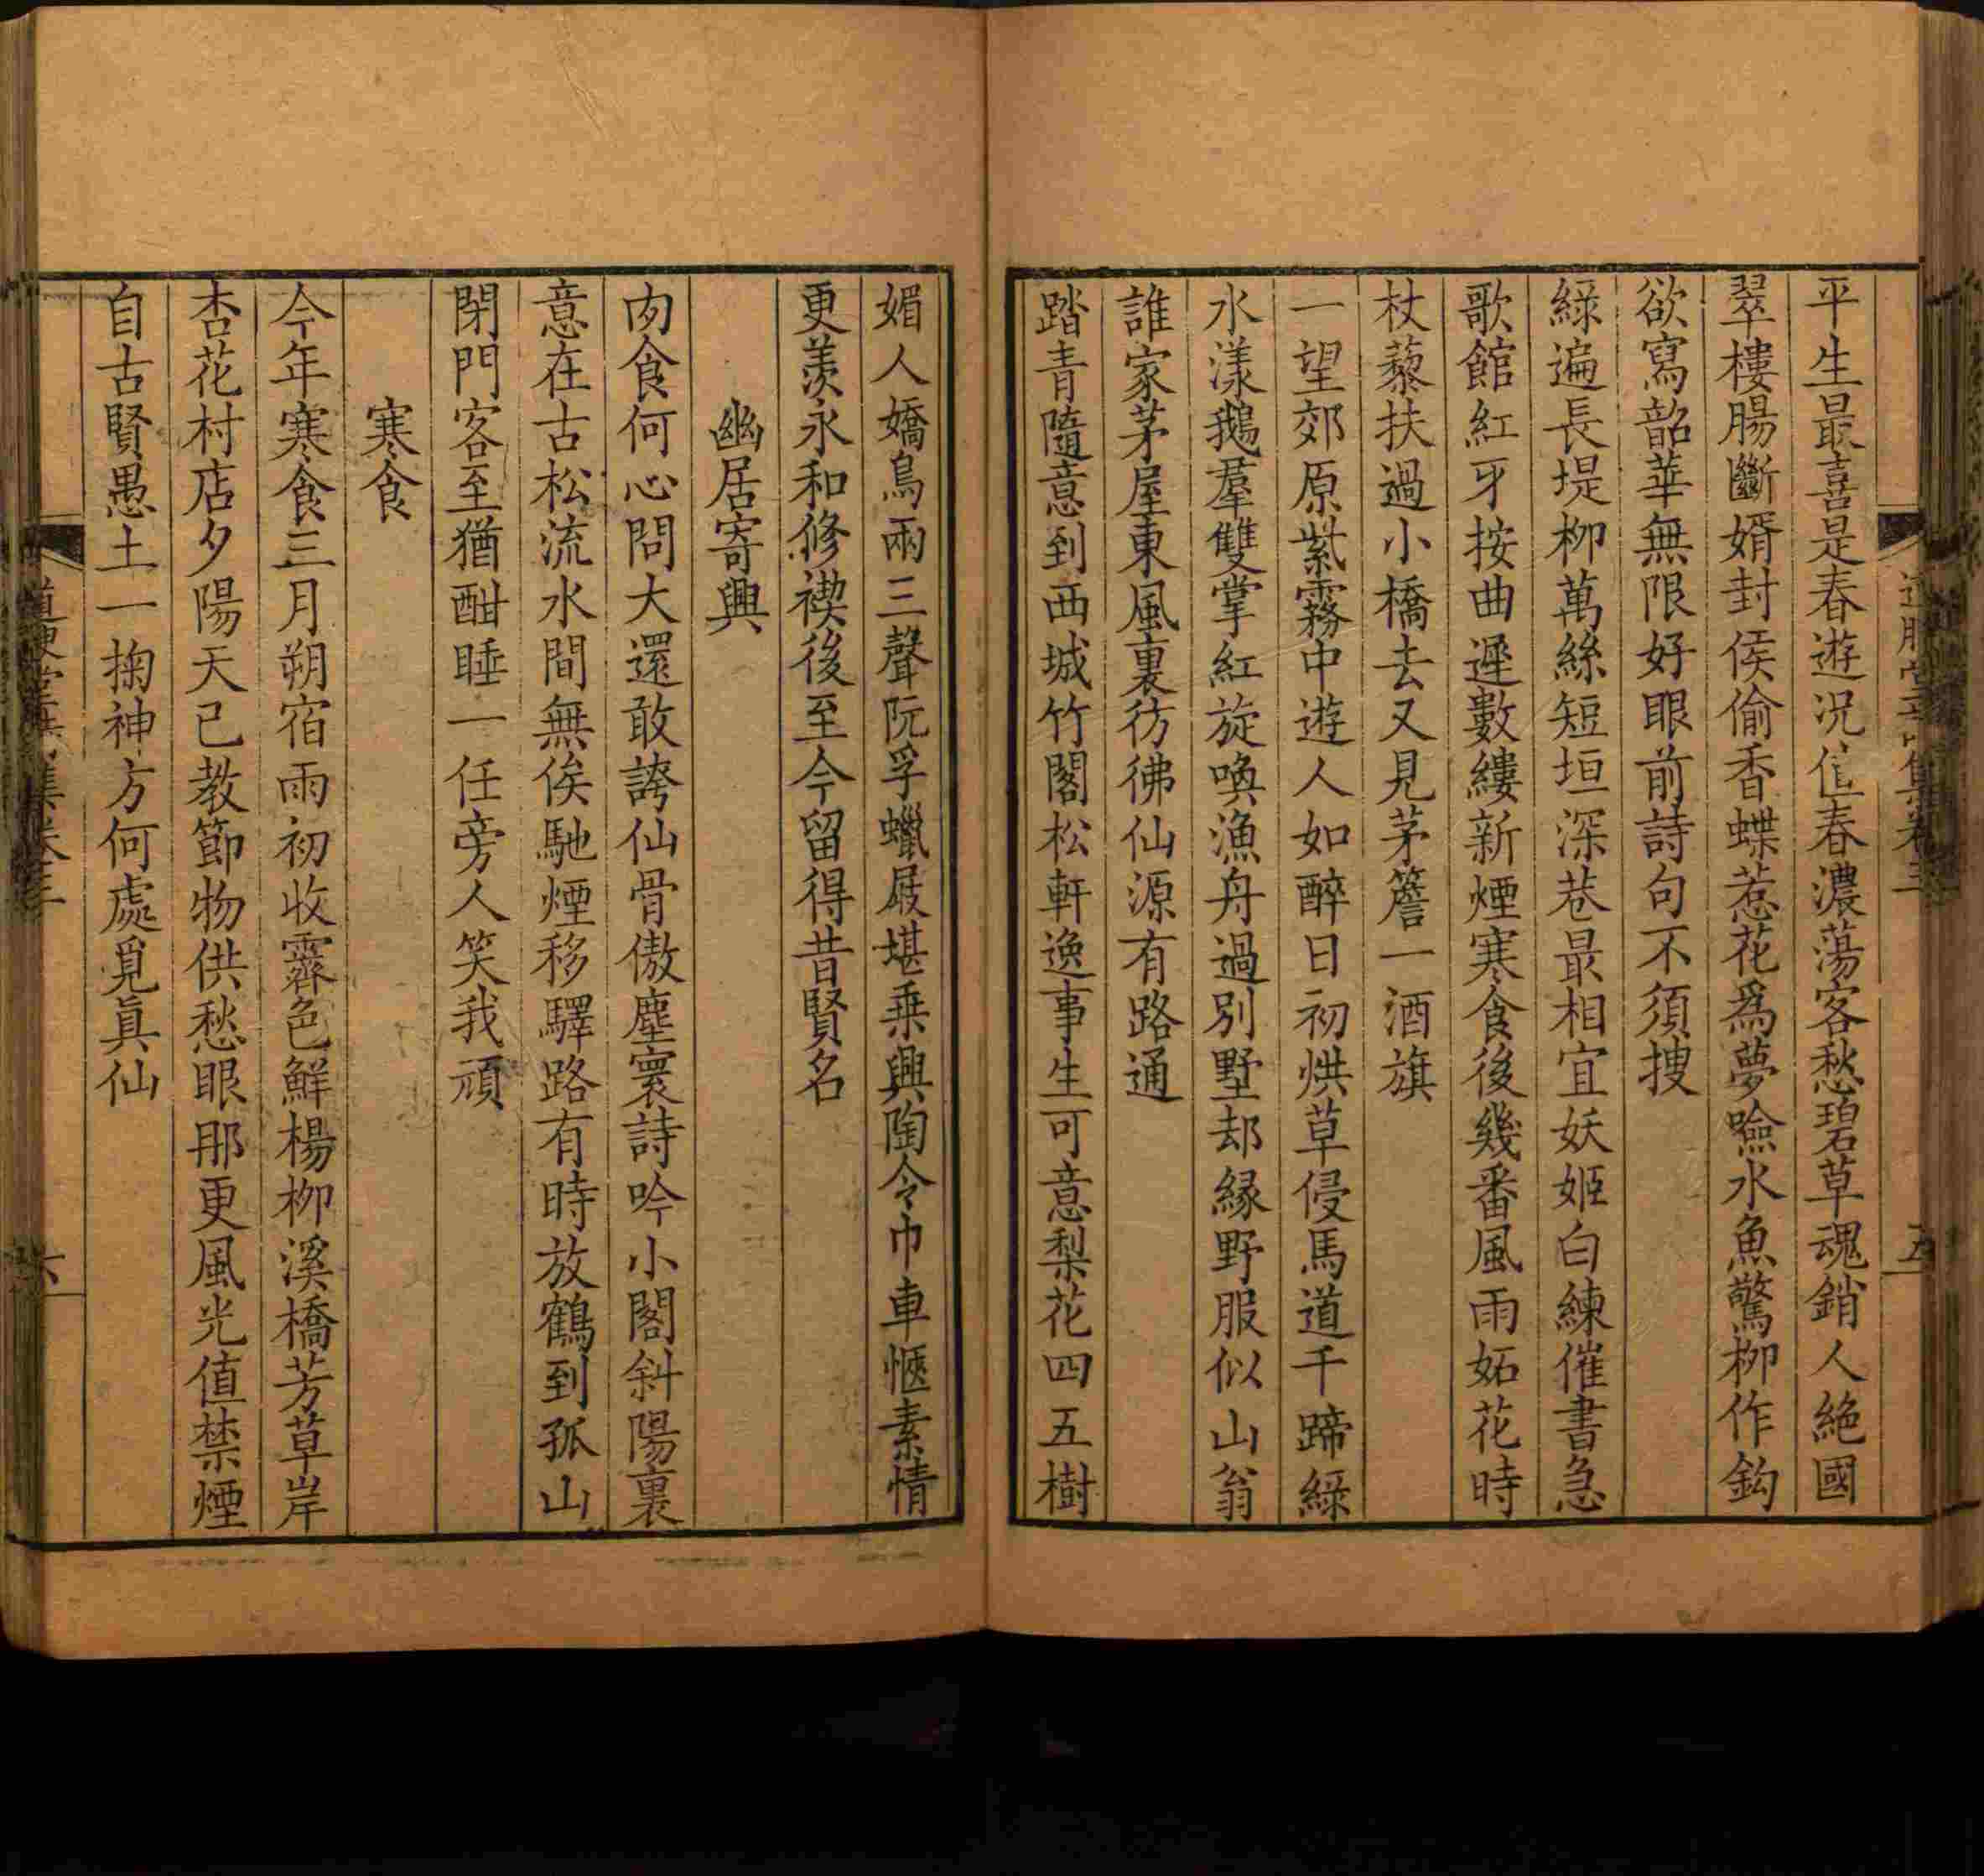 平生最喜是春遊況值春濃蕩客愁碧草魂銷人絶國
翠樓腸斷婿封侯偷香蝶惹花爲夢噞水魚驚柳作鈎
欲寫韶華無限好眼前詩句不須搜
綠遍長堤柳萬絲短垣深巷最相宜妖姬白練催書急
歌館紅牙按曲遲數縷新煙寒食後幾番風雨妬花時
杖藜扶過小橋去又見茅簷一酒旗
一望郊原紫霧中遊人如醉日初烘草侵馬道千蹄綠
水漾鵝羣雙掌紅旋喚漁舟過別墅却緣野服似山翁
誰家茅屋東風裏彷彿仙源有路通
踏青隨意到西城竹閣松軒逸事生可意梨花四五樹
媚人嬌鳥兩三聲阮孚蠟屐堪乘興陶令巾車愜素情
更羨永和修禊後至今留得昔賢名
幽居寄興
肉食何心問大還敢誇仙骨傲塵寰詩吟小閣斜陽裏
意在古松流水間無俟馳煙移驛路有時放鶴到孤山
閉門客至猶酣睡一任旁人笑我頑
寒食
今年寒食三月朔宿雨初收霽色鮮楊柳溪橋芳草岸
杏花村店夕陽天已教節物供愁眼那更風光值禁煙
自古賢愚土一掬神方何處覓眞仙
五
六